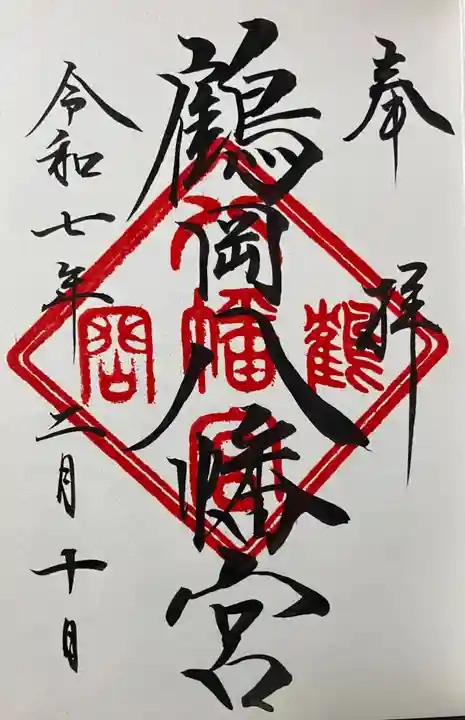 奉拝
鶴岡八幡宮
令和七年二月十日
鶴岡
八幡宮